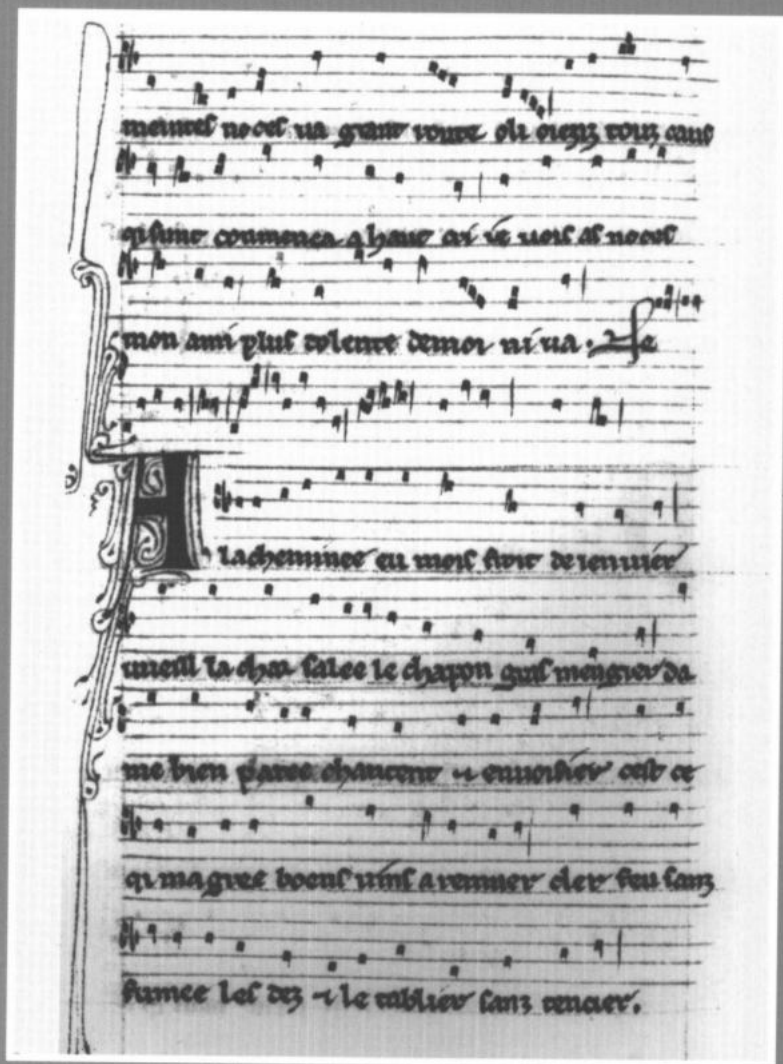 meintes noces va grant route oli oiezz touz caus
qi sunt conmenca a haut cri ie vois as noces
mon ami plus dolente de moi ni va. Je
A la cheminee eu mois froit de ienvier
vueill la char salee le chapon gras mengier da
me bien paree chanteret ⁊ envoisier cest ce
qi magree boens vins a remuer cler feu sanz
fumee les dez ⁊ le tablier sanz tencier.